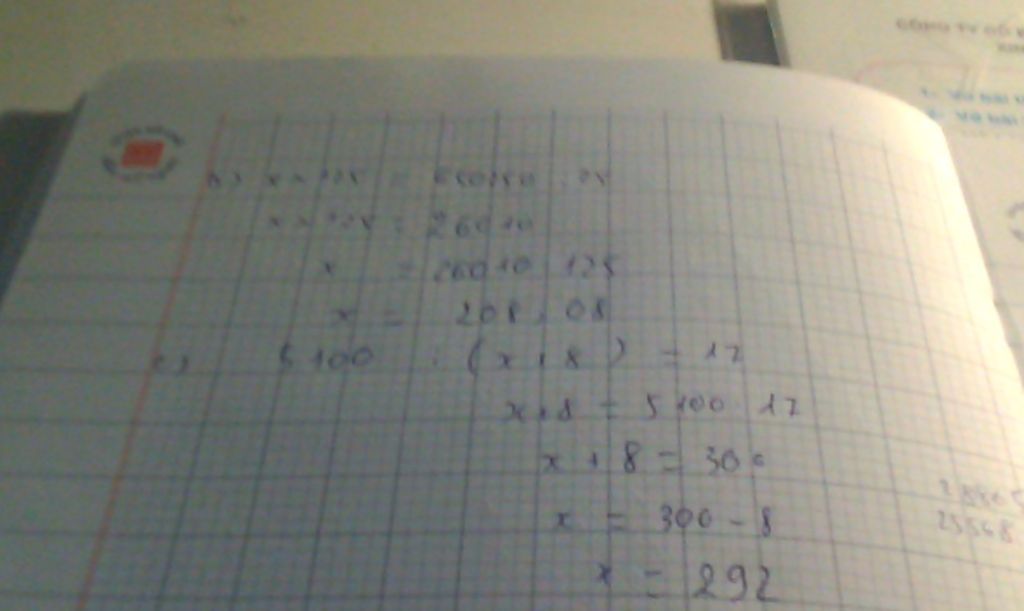 CÔNG TY CỔ
1. Vở bài
2. Vở bài
b) x × 125 = 650250 : 25
x × 125 = 26010
x = 26010 : 125
x = 208,08
c) 5100 : (x + 8) = 17
x + 8 = 5100 : 17
x + 8 = 300
x = 300 - 8
x = 292